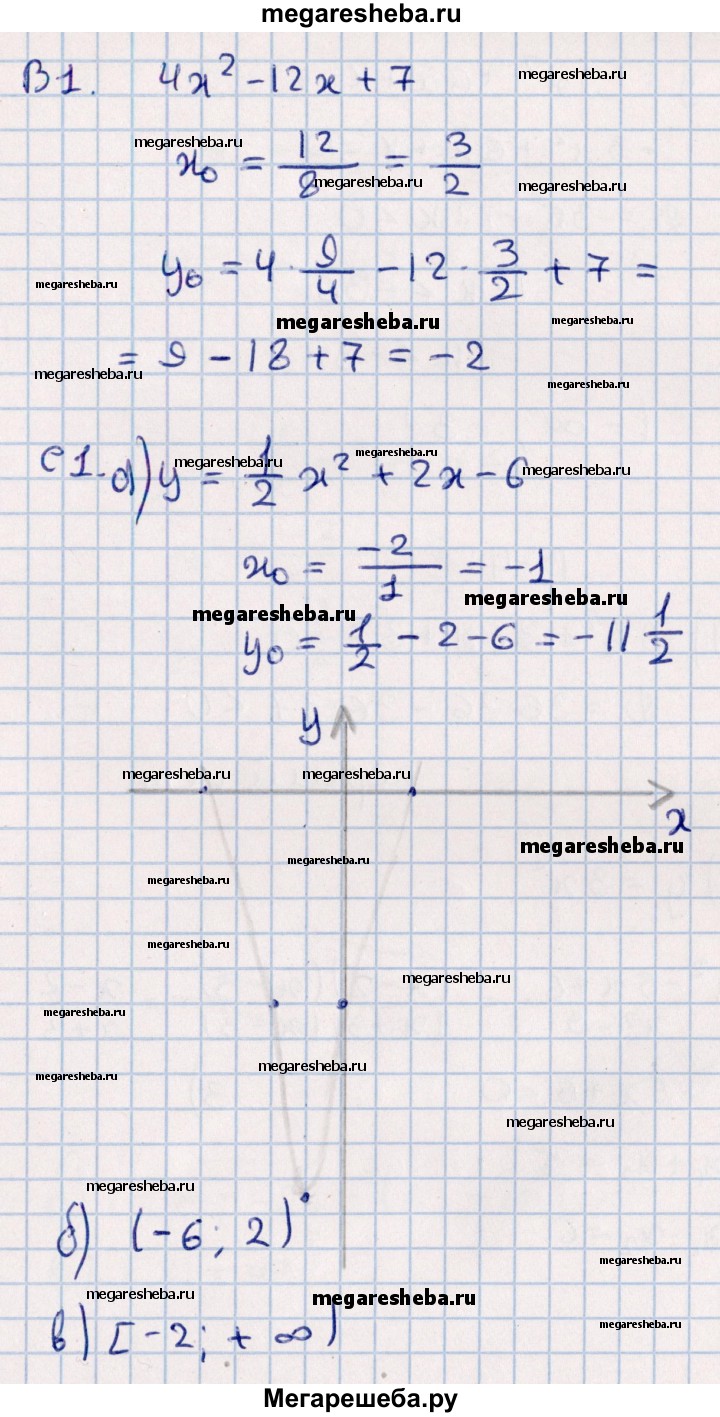 megaresheba.ru
В1. 4x² - 12x + 7 megaresheba.ru
megaresheba.ru
x₀ = 12/8 = 3/2
megaresheba.ru megaresheba.ru
y₀ = 4 · 9/4 - 12 · 3/2 + 7 =
megaresheba.ru
megaresheba.ru megaresheba.ru
= 9 - 18 + 7 = -2
megaresheba.ru megaresheba.ru
megaresheba.ru
С1. а) y = 1/2 x² + 2x - 6
megaresheba.ru megaresheba.ru
x₀ = -2/1 = -1
megaresheba.ru megaresheba.ru
y₀ = 1/2 - 2 - 6 = -11 1/2
y
megaresheba.ru megaresheba.ru
x
megaresheba.ru
megaresheba.ru
megaresheba.ru
megaresheba.ru
megaresheba.ru
megaresheba.ru
megaresheba.ru
megaresheba.ru
megaresheba.ru
megaresheba.ru
б) (-6; 2)
megaresheba.ru
megaresheba.ru megaresheba.ru
в) [-2; +∞)
megaresheba.ru
Мегарешеба.ру